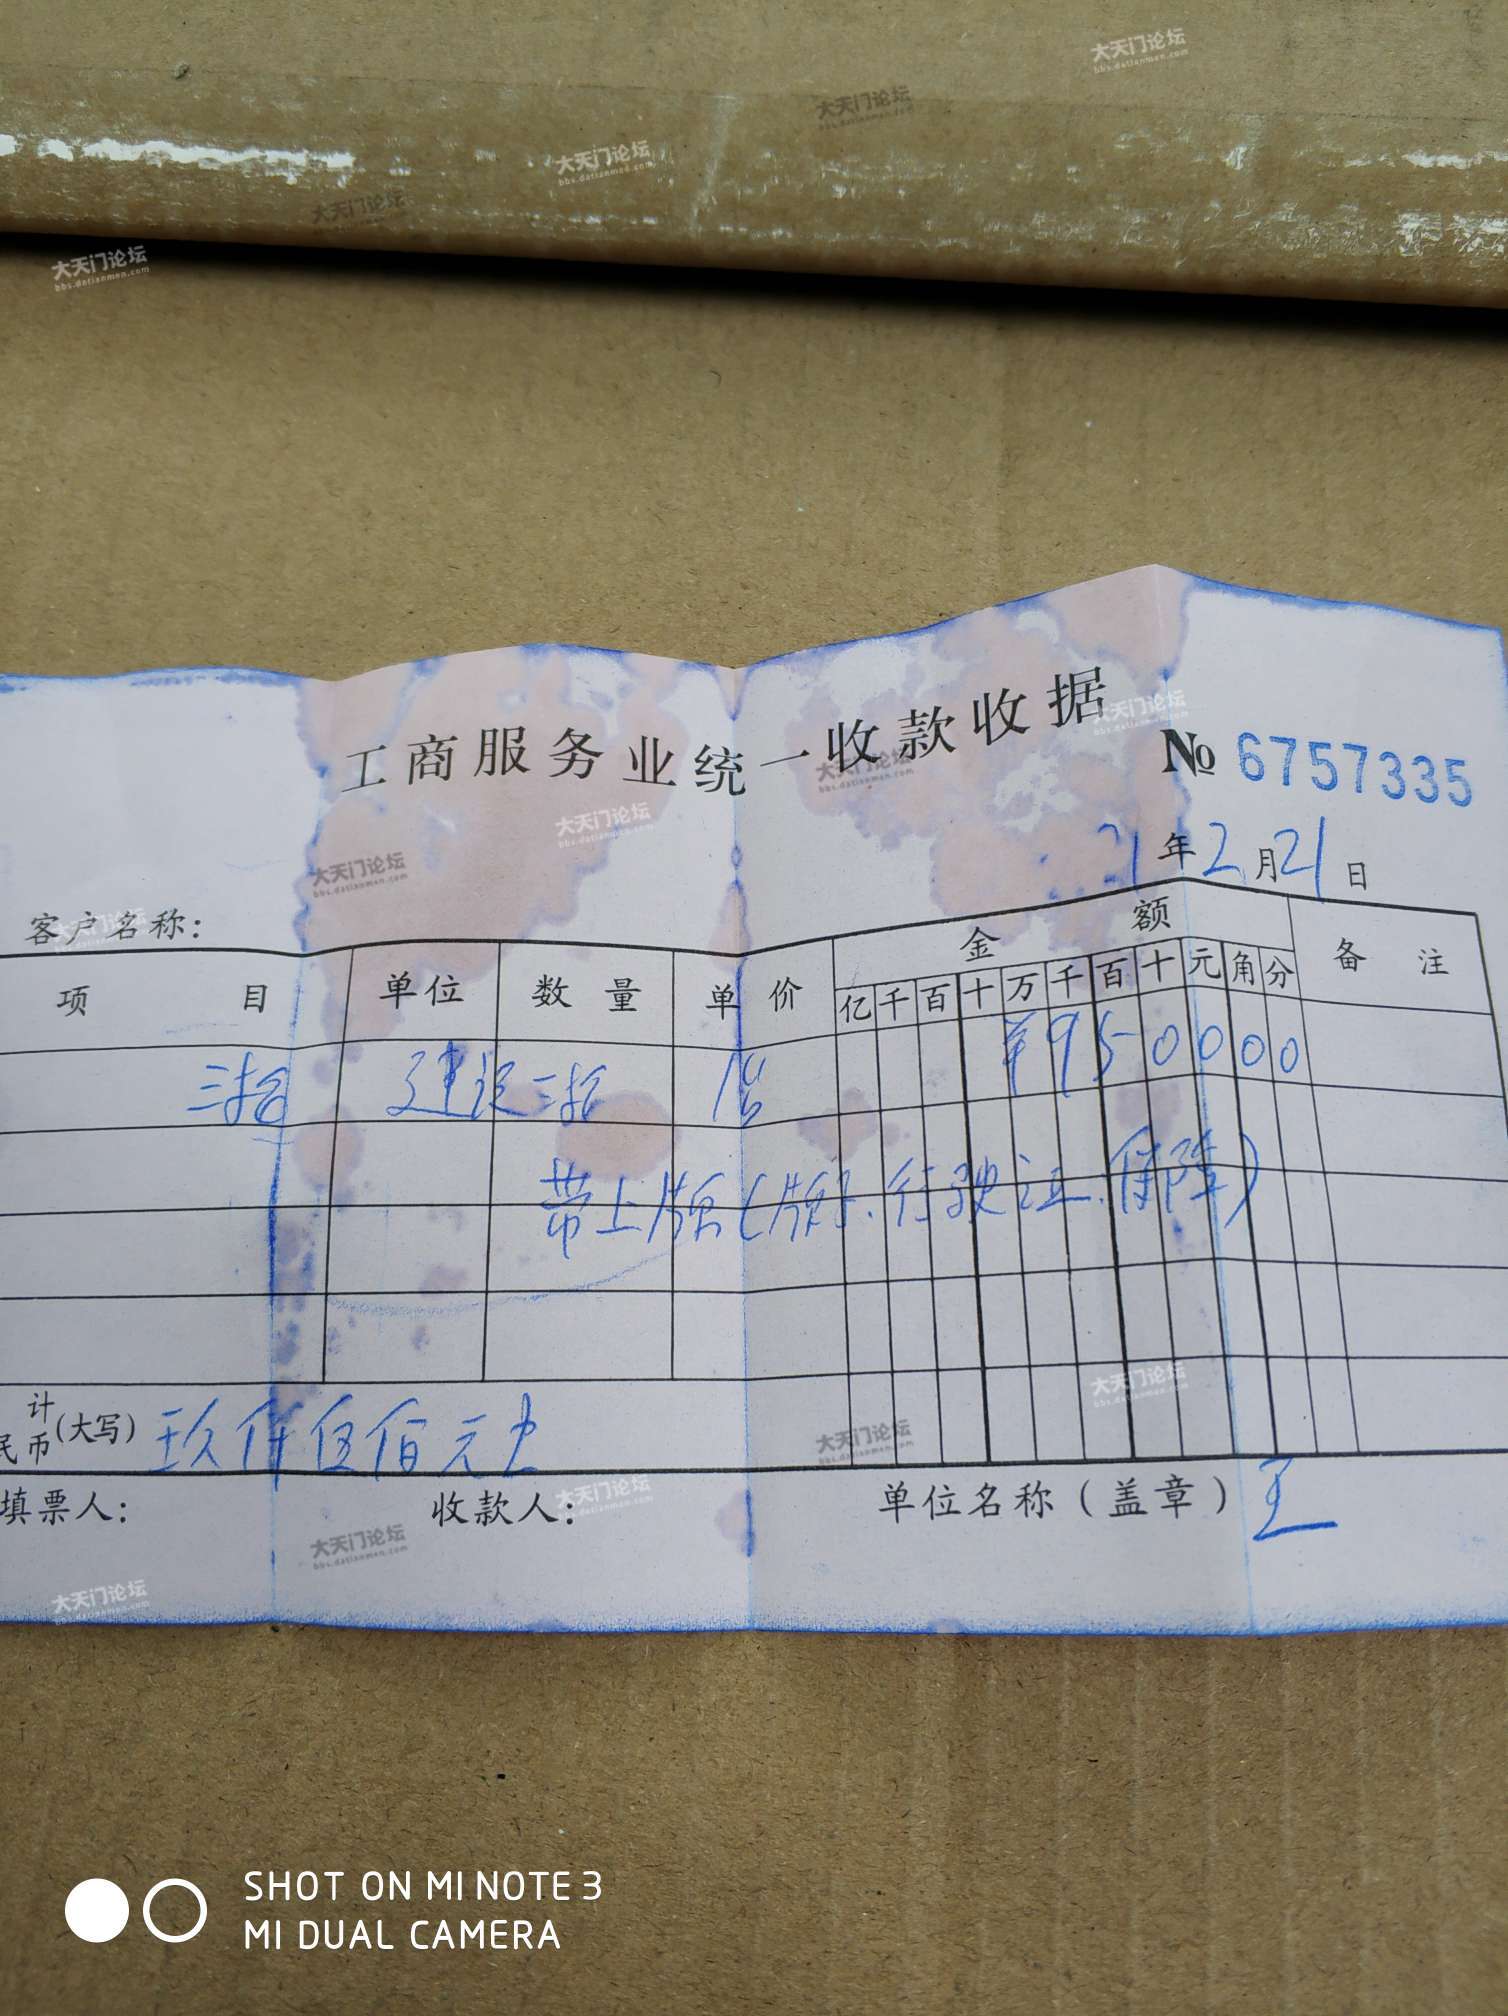 工商服务业统一收款收据
№ 6757335
21年2月21日
客户名称：
项 目 单位 数量 单价 金额 备注
亿 千 百 十 万 千 百 十 元 角 分
建设 ¥950000
带上牌(牌.行驶证.保障)
计
民币(大写) 玖仟伍佰元
填票人： 收款人： 单位名称（盖章）王
大天门论坛
bbs.datianmen.com
SHOT ON MI NOTE 3
MI DUAL CAMERA